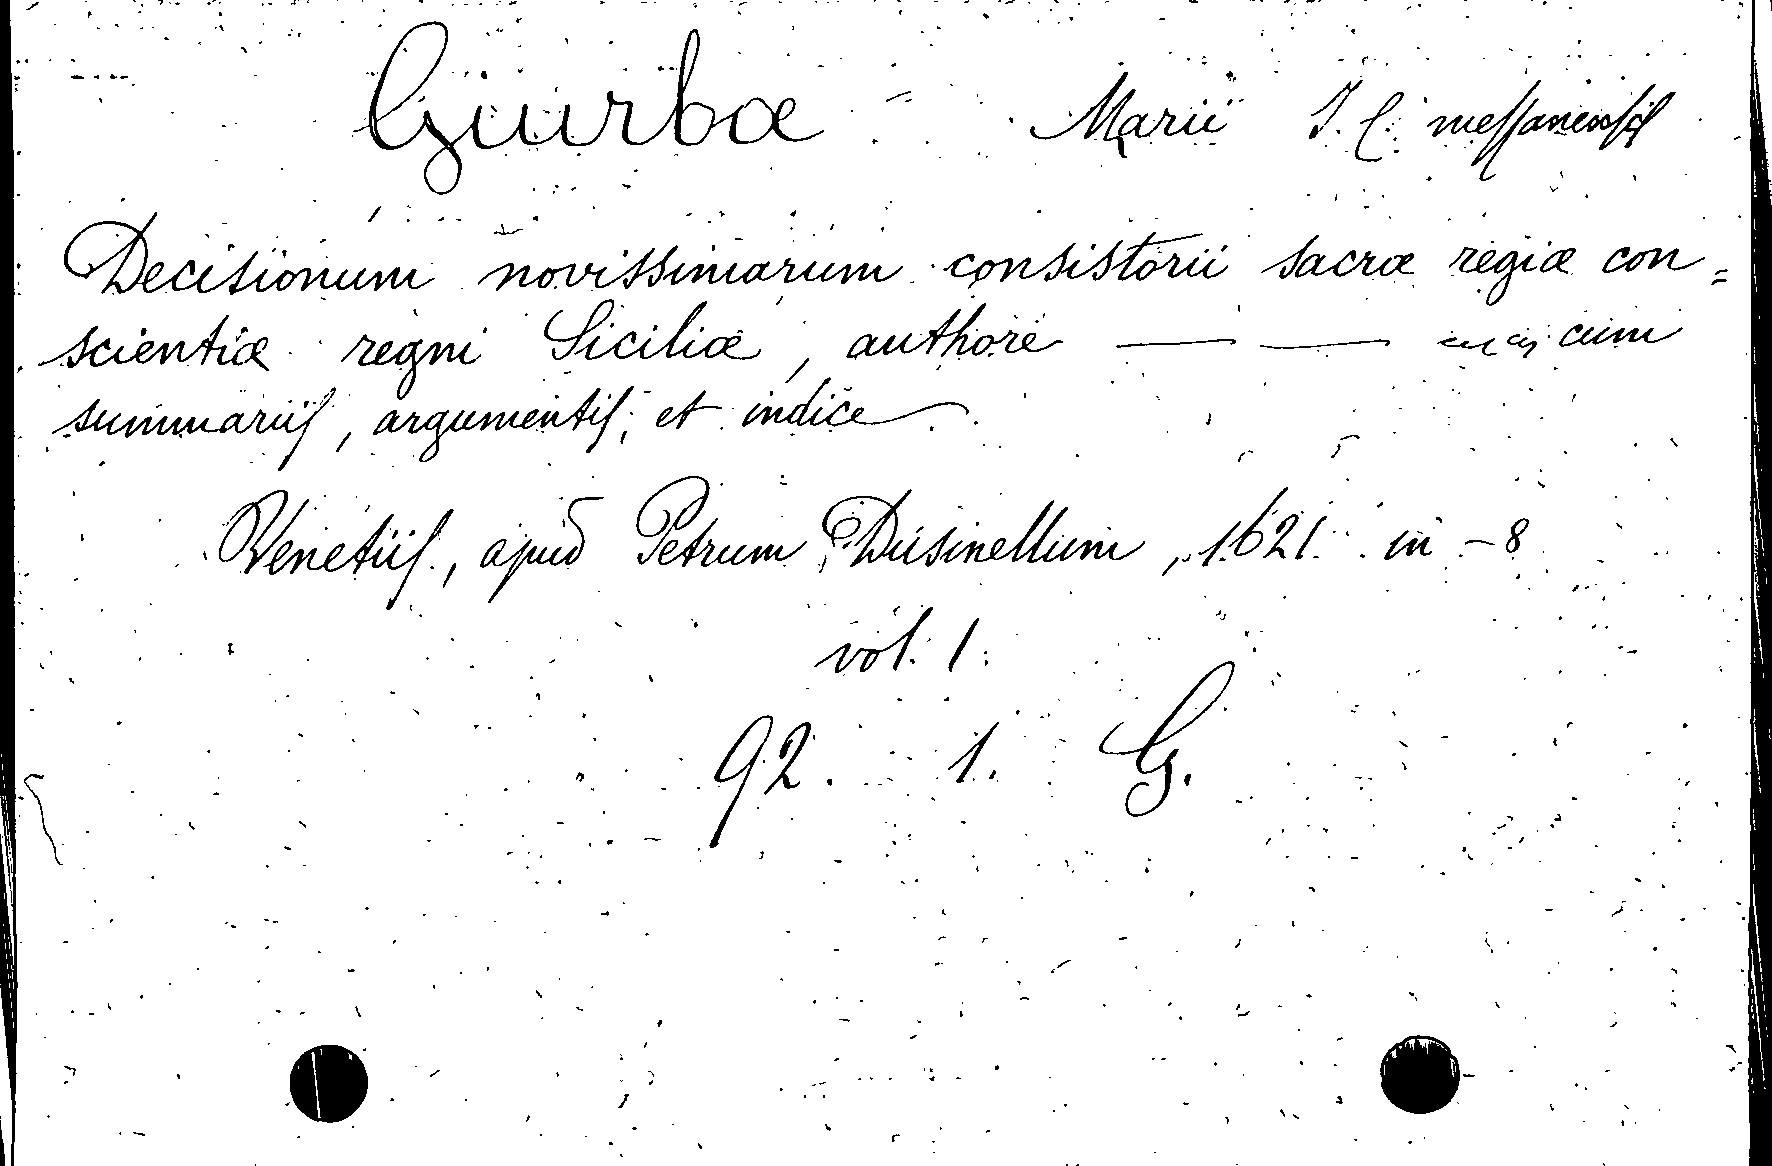 Giurbæ - Marii J. C. messanensis
Decisionum novissimarum consistorii sacræ regiæ con=
scientiæ regni Siciliæ, authore — — cum
summariis, argumentis, et indice
Venetiis, apud Petrum Dusinellum, 1621 in-8
vol. 1.
92. 1. G.